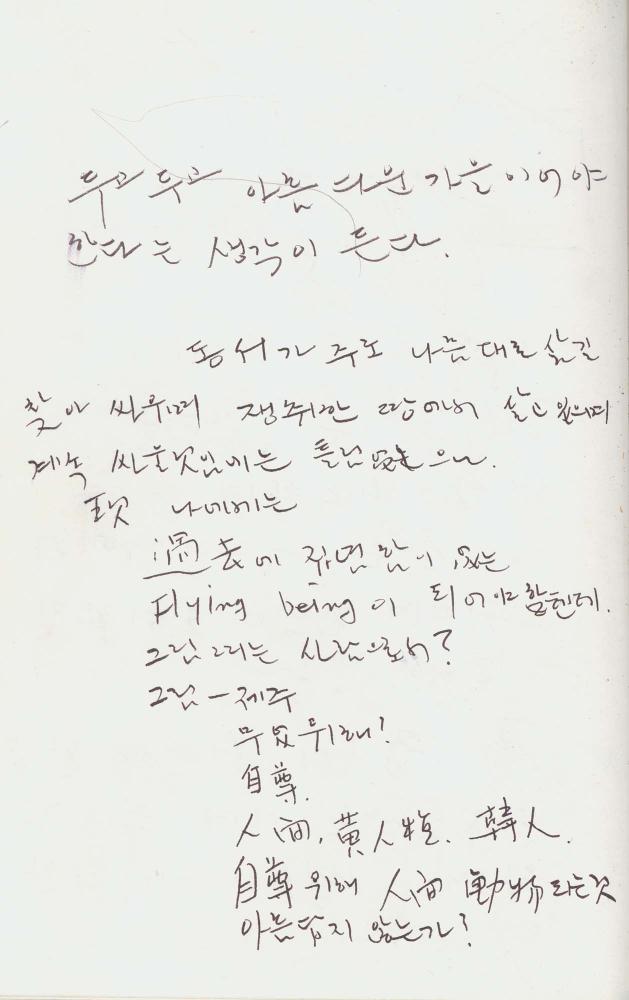 두고 두고 아름다운 가을이어야
한다는 생각이 든다.
동서가 주로 나름대로 삶길
찾아 싸우며 쟁취한 땅에서 살고 있으며
계속 싸울것임에는 틀림없으나.
나에게는
過去에 쥐면 앎이 없는
Flying being이 되어야 할텐데.
그림 그리는 사람으로서?
그림 - 제주
무엇 위해?
自尊.
人間, 黃人種. 韓人.
自尊 위해 人間 動物 되는것
아름답지 않는가?